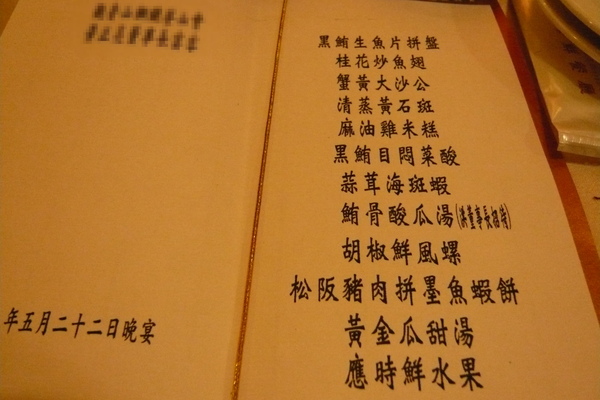 年五月二十二日晚宴
黑鮪生魚片拼盤
桂花炒魚翅
蟹黃大沙公
清蒸黃石斑
麻油雞米糕
黑鮪目悶菜酸
蒜茸海斑蝦
鮪骨酸瓜湯(洪董事長招待)
胡椒鮮風螺
松阪豬肉拼墨魚蝦餅
黃金瓜甜湯
應時鮮水果